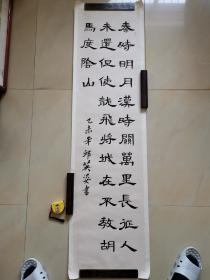 秦時明月漢時關萬里長征人
未還但使龍飛將城在不教胡
馬度陰山
乙未年英姿書